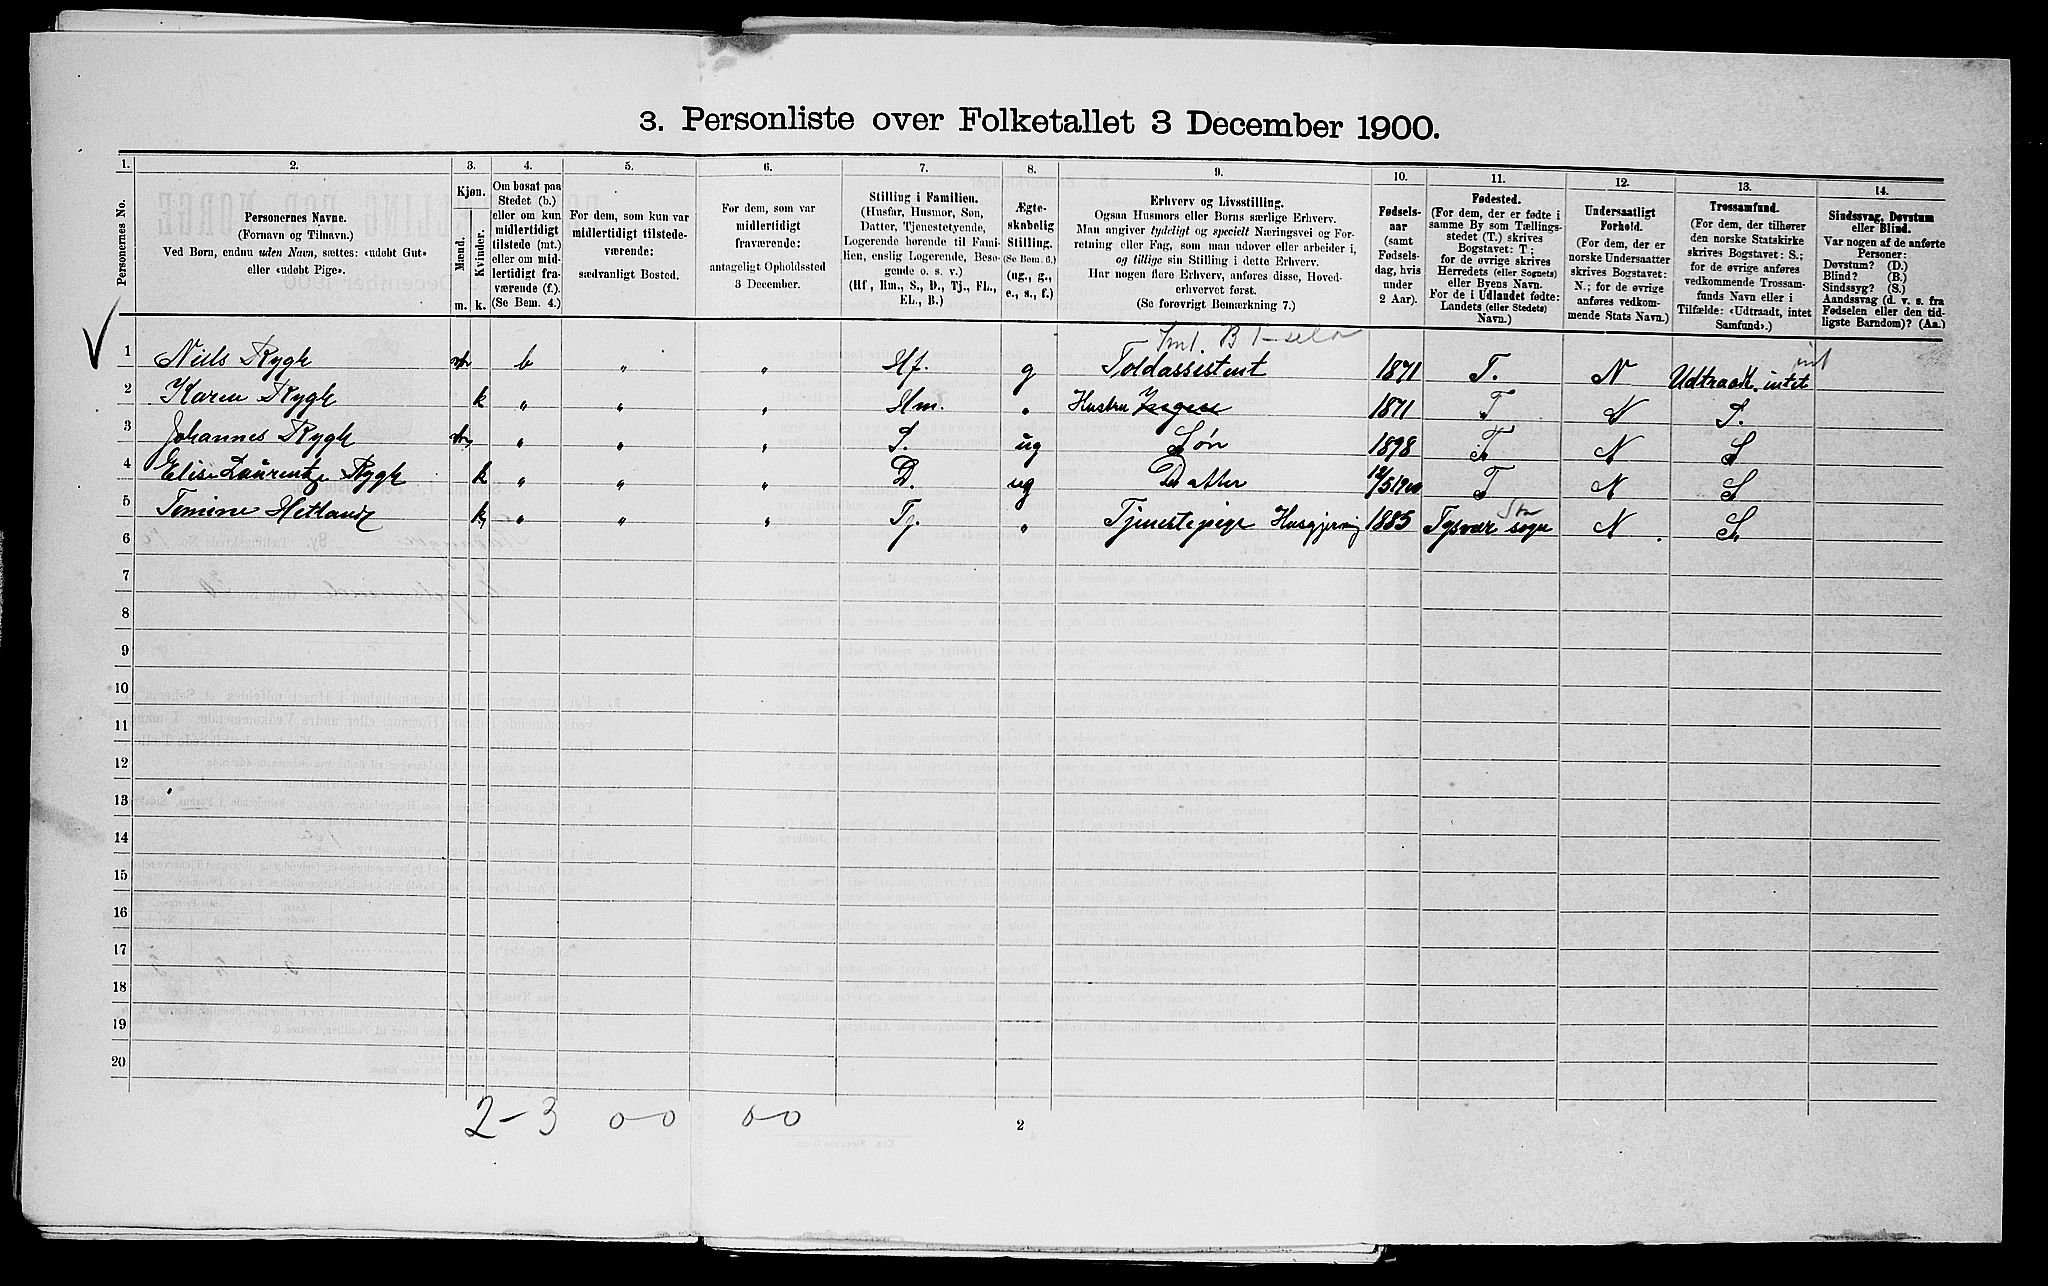 3. Personliste over Folketallet 3 December 1900.
1. 2. 3. 4. 5. 6. 7. 8. 9. 10. 11. 12. 13. 14.
Personernes No.
Personernes Navne.
(Fornavn og Tilnavn.)
Ved Børn, endnu uden Navn, sættes: «udøbt Gut»
eller «udøbt Pige».
Kjøn.
Mænd.
Kvinder.
m. k.
Om bosat paa
Stedet (b.)
eller om kun
midlertidigt
tilstede (mt.)
eller om mid-
lertidigt fra-
værende (f.)
(Se Bem. 4.)
For dem, som kun var
midlertidigt tilstede-
værende:
sædvanligt Bosted.
For dem, som var
midlertidigt
fraværende:
antageligt Opholdssted
3 December.
Stilling i Familien.
(Husfar, Husmor, Søn,
Datter, Tjenestetyende,
Logerende hørende til Fami-
lien, enslig Logerende, Besø-
gende o. s. v.)
(Hf., Hm., S., D., Tj., FL.,
EL., B.)
Ægte-
skabelig
Stilling.
(Se Bem. 6.)
(ug., g.,
e., s., f.)
Erhverv og Livsstilling.
Ogsaa Husmors eller Børns særlige Erhverv.
Man angiver tydeligt og specielt Næringsvei og For-
retning eller Fag, som man udøver eller arbeider i,
og tillige sin Stilling i dette Erhverv.
Har nogen flere Erhverv, anføres disse, Hoved-
erhvervet først.
(Se forøvrigt Bemærkning 7.)
Fødsels-
aar
(samt
Fødsels-
dag, hvis
under
2 Aar).
Fødested.
(For dem, der er fødte i
samme By som Tællings-
stedet (T.) skrives
Bogstavet: T;
for de øvrige skrives
Herredets (eller Sognets)
eller Byens Navn.
For de i Udlandet fødte:
Landets (eller Stedets)
Navn.)
Undersaatligt
Forhold.
(For dem, der er
norske Undersaatter
skrives Bogstavet:
N.; for de øvrige
anføres vedkom-
mende Stats Navn.)
Trossamfund.
(For dem, der tilhører
den norske Statskirke
skrives Bogstavet: S.;
for de øvrige anføres
vedkommende Trossam-
funds Navn eller i
Tilfælde: «Udtraadt, intet
Samfund».)
Sindssvag, Døvstum
eller Blind.
Var nogen af de anførte
Personer:
Døvstum? (D.)
Blind? (B.)
Sindssyg? (S.)
Aandssvag (d. v. s. fra
Fødselen eller den tid-
ligste Barndom)? (Aa.)
1 Niels Rygh m b " " Hf. g Toldassistent 1871 T. N Udtraadt. intet
2 Karen Rygh k " " " Hm. " Hustru Ingen 1871 T N S.
3 Johannes Rygh m " " " S. ug Søn 1898 T N S
4 Elise Laurentze Rygh k " " " D. ug Datter 12/5 1900 T N S
5 Tomine Hetland k " " " Tj. " Tjenestepige Husgjerning 1885 Tysvær sogn N S
6
7
8
9
10
11
12
13
14
15
16
17
18
19
20
2-3 0 0 0 0
2